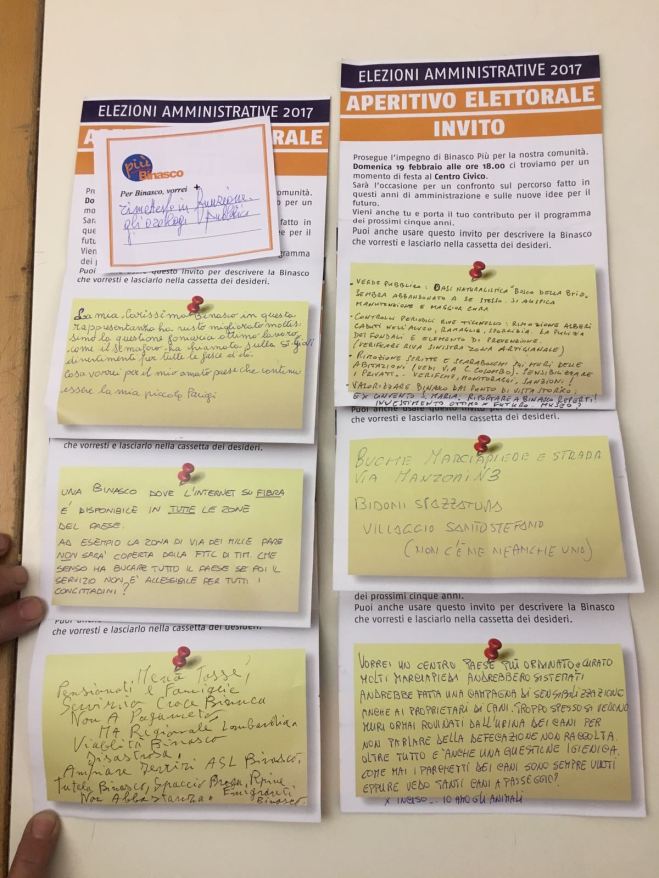 ELEZIONI AMMINISTRATIVE 2017
ORALE
più
Binasco
Per Binasco, vorrei +
rimettere in funzione
gli orologi pubblici
omunità.
per un
fatto in
e per il
ogramma
Puoi anche usare questo invito per descrivere la Binasco
che vorresti e lasciarlo nella cassetta dei desideri.
La mia carissima Binasco in questa
rappresentanza ha visto migliorato moltis
simo la questione fognaria ottimo lavoro
come il semaforo ha chiamato, sulla
divertimento per tutte le fasce d'età.
cosa vorrei per il mio amato paese che continui
essere la mia piccola Parigi
che vorresti e lasciarlo nella cassetta dei desideri.
UNA BINASCO DOVE L'INTERNET SU FIBRA
E' DISPONIBILE IN TUTTE LE ZONE
DEL PAESE.
AD ESEMPIO LA ZONA DI VIA DEI MILLE PARE
NON SARA' COPERTA DALLA FTTC DI TIM. CHE
SENSO HA BUCARE TUTTO IL PAESE SE POI IL
SERVIZIO NON E' ACCESSIBILE PER TUTTI I
CONCITTADINI?
che vorresti e lasciarlo nella cassetta dei desideri.
Meno Tasse,
Pensionati e Famiglie
Servizio Croce Bianca
Non A Pagamento
MA Regionale Lombardia.
Viabilità Binasco
Disastrosa,
Ampliare Servizi ASL Binasco,
Tutela Binasco, Spaccio Droga, Rapine
Non Abbastanza. Emigranti
Binasco
ELEZIONI AMMINISTRATIVE 2017
APERITIVO ELETTORALE
INVITO
Prosegue l'impegno di Binasco Più per la nostra comunità.
Domenica 19 febbraio alle ore 18.00 ci troviamo per un
momento di festa al Centro Civico.
Sarà l'occasione per un confronto sul percorso fatto in
questi anni di amministrazione e sulle nuove idee per il
futuro.
Vieni anche tu e porta il tuo contributo per il programma
dei prossimi cinque anni.
Puoi anche usare questo invito per descrivere la Binasco
che vorresti e lasciarlo nella cassetta dei desideri.
• VERDE PUBBLICO: OASI NATURALISTICA "BOSCO DELLA
SEMBRA ABBANDONATO A SE STESSO. SI AUSPICA
MANUTENZIONE E MAGGIOR CURA
• CONTROLLI PERIODICI RIVE TICINELLO: RIMOZIONE ALBERI
CADUTI NELL'ALVEO, RAMAGLIA, SPORCIZIA. LA PULIZIA
DEI FONDALI E' ELEMENTO DI PREVENZIONE.
(VERIFICARE RIVA SINISTRA ZONA ARTIGIANALE)
• RIMOZIONE SCRITTE E SCARABOCCHI SUI MURI DELLE
ABITAZIONI (VEDI VIA C. COLOMBO). SENSIBILIZZARE
I PRIVATI. VERIFICHE, MONITORAGGI, SANZIONI!
• VALORIZZARE BINASCO DAL PUNTO DI VISTA STORICO,
EX CONVENTO S. MARIA. RIPORTARE A BINASCO REPERTI!
INVESTIMENTO OTTIMO X FUTURO. MUSEO?
Puoi anche usare questo invito per descrivere la Binasco
che vorresti e lasciarlo nella cassetta dei desideri.
BUCHE MARCIAPIEDE E STRADA
VIA MANZONI N°3
BIDONI SPAZZATURA
VILLAGGIO SANTO STEFANO
(NON C'È NE NEANCHE UNO)
dei prossimi cinque anni.
Puoi anche usare questo invito per descrivere la Binasco
che vorresti e lasciarlo nella cassetta dei desideri.
VORREI UN CENTRO PAESE PIÙ ORDINATO e CURATO
MOLTI MARCIAPIEDI ANDREBBERO SISTEMATI
ANDREBBE FATTA UNA CAMPAGNA DI SENSIBILIZZAZIONE
ANCHE AI PROPRIETARI DI CANI. TROPPO SPESSO SI VEDONO
MURI ORMAI ROVINATI DALL'URINA DEI CANI PER
NON PARLARE DELLA DEFECAZIONE NON RACCOLTA.
OLTRE TUTTO E' ANCHE UNA QUESTIONE IGIENICA.
COME MAI I PARCHETTI DEI CANI SONO SEMPRE VUOTI
EPPURE VEDO TANTI CANI A PASSEGGIO?
X INCISO... IO AMO GLI ANIMALI